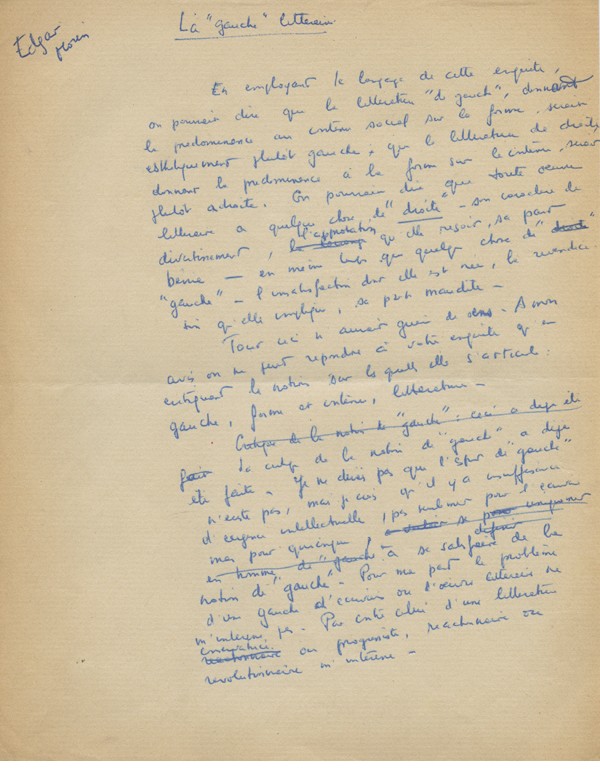 Edgar
Morin
La "gauche" litteraire
En employant le langage de cette enquête,
on pourrait dire que la litterature "de gauche", donnant
la predominence au contenu social sur la forme, serait
esthétiquement plutot gauche, et que la litterature de droite,
donnant la predominence à la forme sur le contenu, serait
plutot adroite. On pourrait dire que toute oeuvre
litteraire a quelque chose de "droite" – son caractere de
divertissement, l'approbation qu'elle reçoit, sa part
bénie – en même temps que quelque chose de "droite"
"gauche" – l'insatisfaction dont elle est nee, la revendica-
tion qu'elle implique, sa part maudite –
Tout ceci n'aurait guère de sens. A mon
avis on ne peut repondre à votre enquête qu'en
critiquant les notions sur lesquelles elle s'articule :
gauche, forme et contenu, litterature –
Critique de la notion de "gauche" : ceci a deja été
fait La critique de la notion de "gauche" a deja
été faite. Je ne dirais pas que l'esprit de "gauche"
n'existe pas, mais je crois qu'il y a insuffisance
d'exigence intellectuelle, pas seulement pour l'ecrivain
mais pour quiconque, se uniquement
en homme de "gauche" à se satisfaire de la
definir
notion de "gauche" – Pour ma part le problème
d'une gauche d'ecrivains ou l'oeuvre litteraire ne
m'interesse pas – Par contre celui d'une litterature
conservatrice
reactionnaire ou progressiste, reactionnaire ou
revolutionnaire m'interesse –